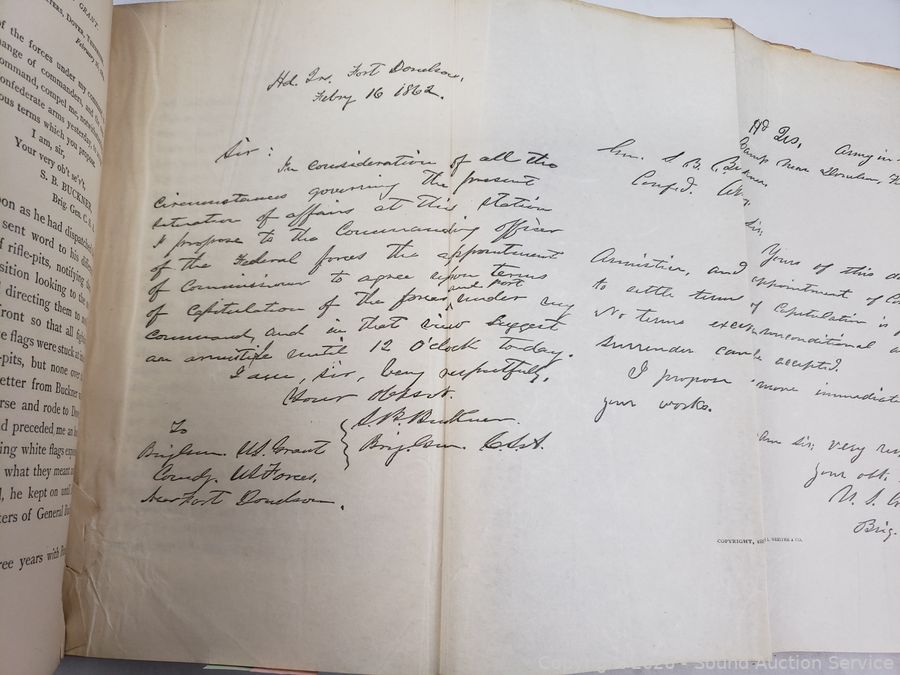 GRANT.
of the forces under my
change of commanders, and the
command, compel me,
Confederate arms yesterday, to
ous terms which you propose.
I am, sir,
Your very ob't se'v't,
S. B. BUCKNER,
Brig. Gen. C. S. A.
oon as he had dispatched
sent word to his
f rifle-pits, notifying
sition looking to the
directing them to
front so that all
e flags were stuck
-pits, but none over
etter from Buckner
rse and rode to
d preceded me
ing white flags
what they meant
, he kept on until
ters of General
ree years with
Hd. Qrs. Fort Donelson,
Febry 16 1862.
Sir:
In consideration of all the
circumstances governing the present
situation of affairs at this station
I propose to the Commanding officer
of the Federal forces the appointment
of Commissioners to agree upon terms
of capitulation of the forces and fort under my
command, and in that view suggest
an armistice until 12 O'clock today.
I am, sir, very respectfully,
Your obdt. sevt.
S. B. Buckner
Brig. Gen. C.S.A.
To
Brig Gen. U.S. Grant
Comdg. US Forces,
Near Fort Donelson.
Gen. S. B. Buckner,
Confd. Army,
Armistice, and
to settle terms
No terms except
surrender can
I propose
your works.
Hd Qrs, Army in
Camp near Donelson,
Sir;
Yours of this
appointment of
of Capitulation is
unconditional
be accepted.
more immediate
am sir; very
your obt.
U. S.
Brig.
COPYRIGHT, WEBSTER & CO.
Copyright 2020 - Sound Auction Service